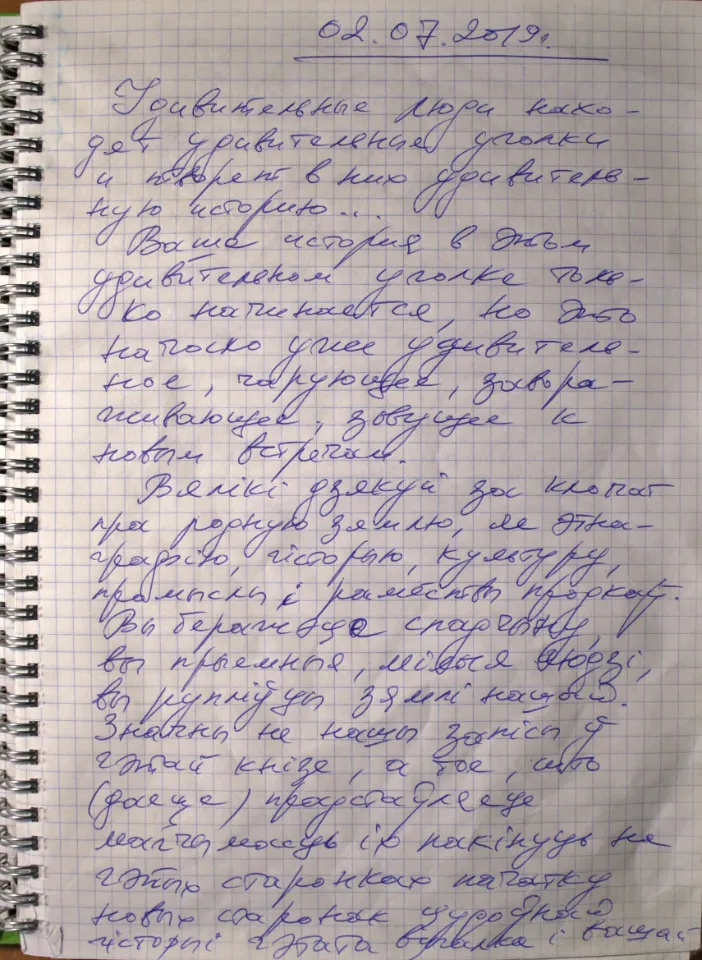 02.07.2019г.
Удивительные люди нахо-
дят удивительные уголки
и творят в них удивитель-
ную историю...
Ваша история в этом
удивительном уголке толь-
ко начинается, но это
начало уже удивитель-
ное, чарующее, завора-
живающее, зовущее к
новым встречам.
Вялікі дзякуй за клопат
пра родную зямлю, яе этна-
графію, гісторыю, культуру,
промыслы і рамёствы продкаў.
Вы беражэце спадчыну,
вы прыемныя, мілыя людзі,
вы рупліўцы зямлі нашай.
Значны не нашы запісы ў
гэтай кнізе, а тое, што
(даеце) прадстаўляеце
магчымасць іх пакінуць на
гэтых старонках пачатку
новых старонак цудоўнай
гісторыі гэтага вугалка і вашай